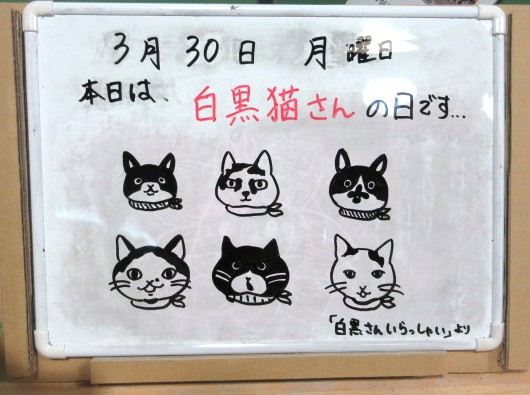 3月30日 月曜日
本日は、白黒猫さんの日です...
「白黒さんいらっしゃい」より